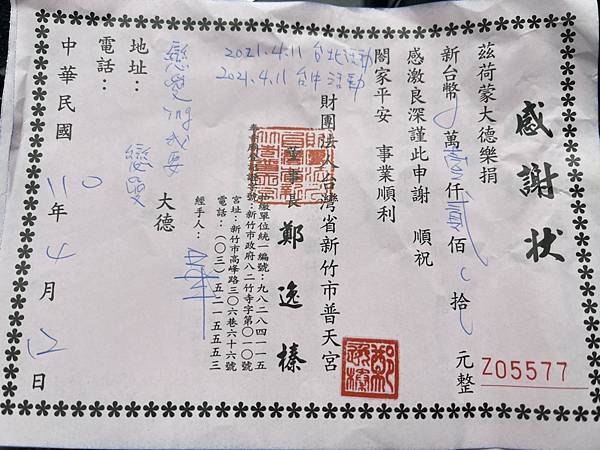 感謝狀
茲荷蒙大德樂捐
新台幣 萬壹仟貳佰 拾 元整
感激良深謹此申謝 順祝
閤家平安 事業順利
財團法人台灣省新竹市普天宮
董事長 鄭逸榛
扣繳單位統一編號:九八二八四一一五
新竹市政府八二竹寺字第〇一〇號
宮址:新竹市高峰路三〇六巷六十六號
電話:(〇三)五二一五五五三
經手人:
大德
2021.4.11 台北活動
2021.4.11 台中活動
地址:
電話:
中華民國 110 年 4 月 12 日
Z05577